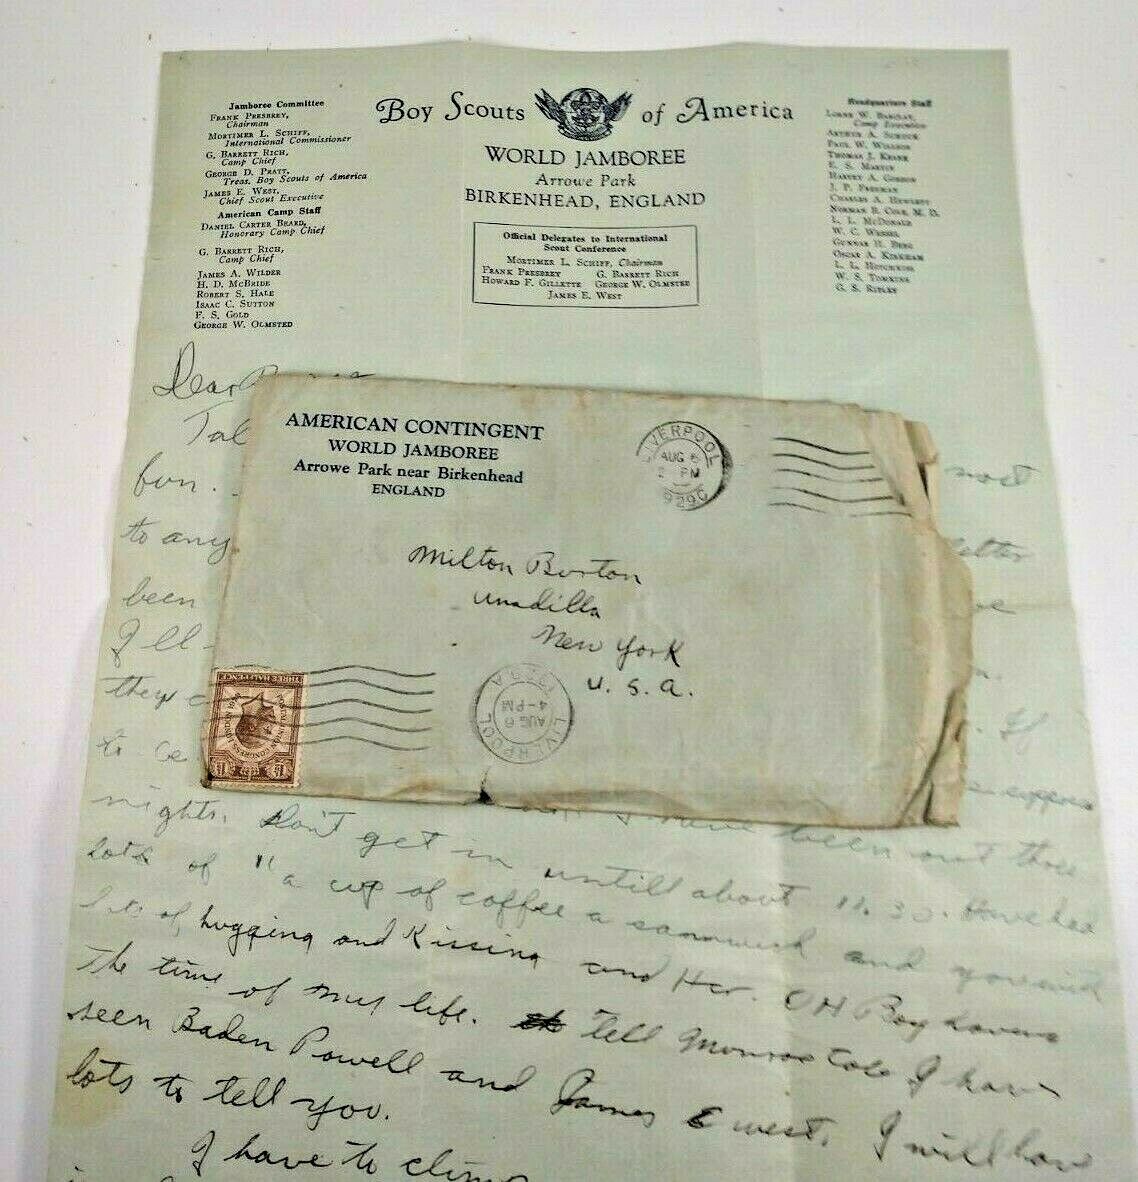 Boy Scouts of America
WORLD JAMBOREE
Arrowe Park
BIRKENHEAD, ENGLAND
Jamboree Committee
FRANK PRESBREY,
Chairman
MORTIMER L. SCHIFF,
International Commissioner
G. BARRETT RICH,
Camp Chief
GEORGE D. PRATT,
Treas. Boy Scouts of America
JAMES E. WEST,
Chief Scout Executive
American Camp Staff
DANIEL CARTER BEARD,
Honorary Camp Chief
G. BARRETT RICH,
Camp Chief
JAMES A. WILDER
H. D. MCBRIDE
ROBERT S. HALE
ISAAC C. SUTTON
F. S. GOLD
GEORGE W. OLMSTED
Official Delegates to International
Scout Conference
MORTIMER L. SCHIFF, Chairman
FRANK PRESBREY G. BARRETT RICH
HOWARD F. GILLETTE GEORGE W. OLMSTED
JAMES E. WEST
Headquarters Staff
LORNE W. BARCLAY,
ARTHUR A. SCHUCK
PAUL W. WILLSON
THOMAS J. KEANE
E. S. MARTIN
HARVEY A. GORDON
J. P. FREEMAN
CHARLES A. HEWLETT
NORMAN B. COLE, M. D.
L. L. MCDONALD
W. C. WESSEL
GUNNAR H. BERG
OSCAR A. KIRKHAM
L. L. HOTCHKISS
W. S. TOMKINS
G. S. RIPLEY
Dear
fun. most
to any letter
been
I ll
they If
to suppose
AMERICAN CONTINGENT
WORLD JAMBOREE
Arrowe Park near Birkenhead
ENGLAND
LIVERPOOL
AUG 6
PM
Milton Burton
Unadilla
New York
U. S. A.
THREE HALFPENCE
POSTAL UNION CONGRESS LONDON 1929
LIVERPOOL
AUG 6
4-PM
1929
nights. Don't get in untill about 11.30. Have had
lots of "a cup of coffee a sandwich and you
lots of hugging and Kissing and Her. OH Boy
the time of my life. tell Monroe Cole I have
seen Baden Powell and James E west. I will have
lots to tell you.
I have to